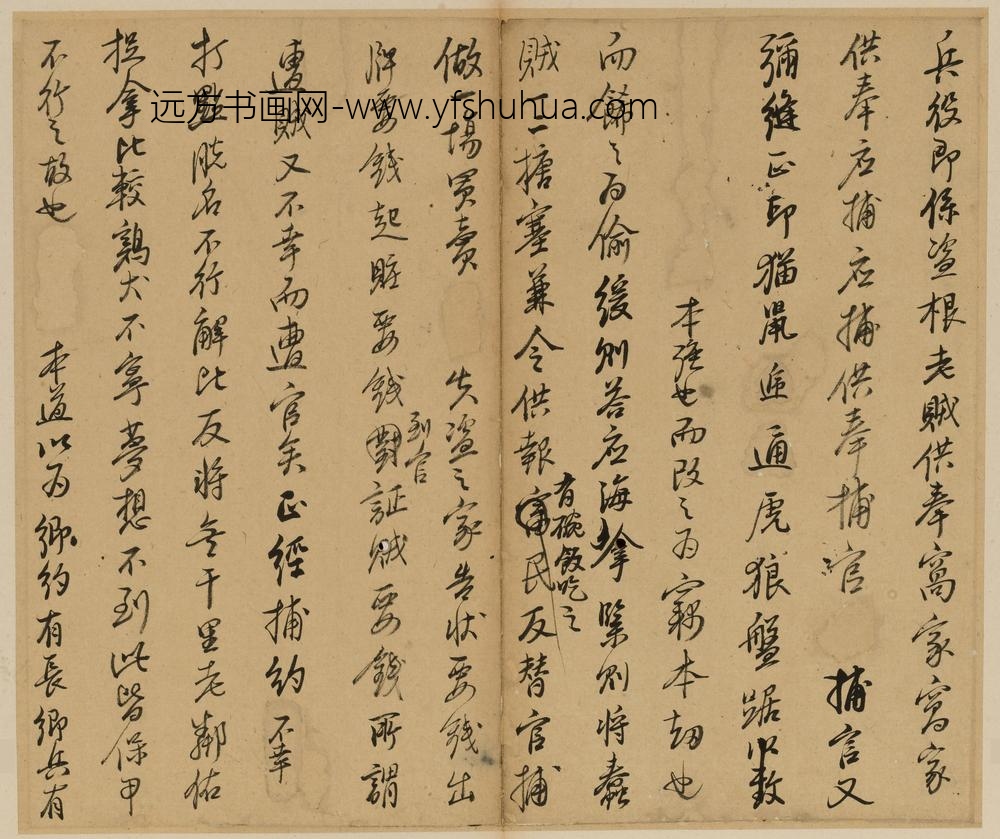 兵役即係盗根老賊供奉窩家窩家
供奉应捕应捕供奉捕官 捕官又
彌縫正印猫鼠 通虎狼盤踞
本强也而改之为窃本劫也
而飾之为偷缓则荅应海拿緊则将蠢
賊一二搪塞兼令供報有碗飯吃之民反替官捕
做一場買賣 失盗之家告状要錢出
牌要錢起賍要錢到官對証贼要錢所謂
遭贼又不幸而遭官矣正經捕约 不幸
打點脱名不行解比反将无干里老鄰佑
捉拿比較鷄犬不寧夢想不到此皆保甲
不行之故也 本道以为鄉约有長鄉兵有
远方书画网-www.yfshuhua.com